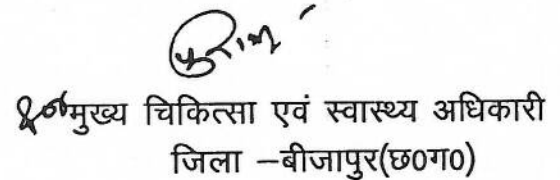 मुख्य चिकित्सा एवं स्वास्थ्य अधिकारी
जिला –बीजापुर(छ0ग0)